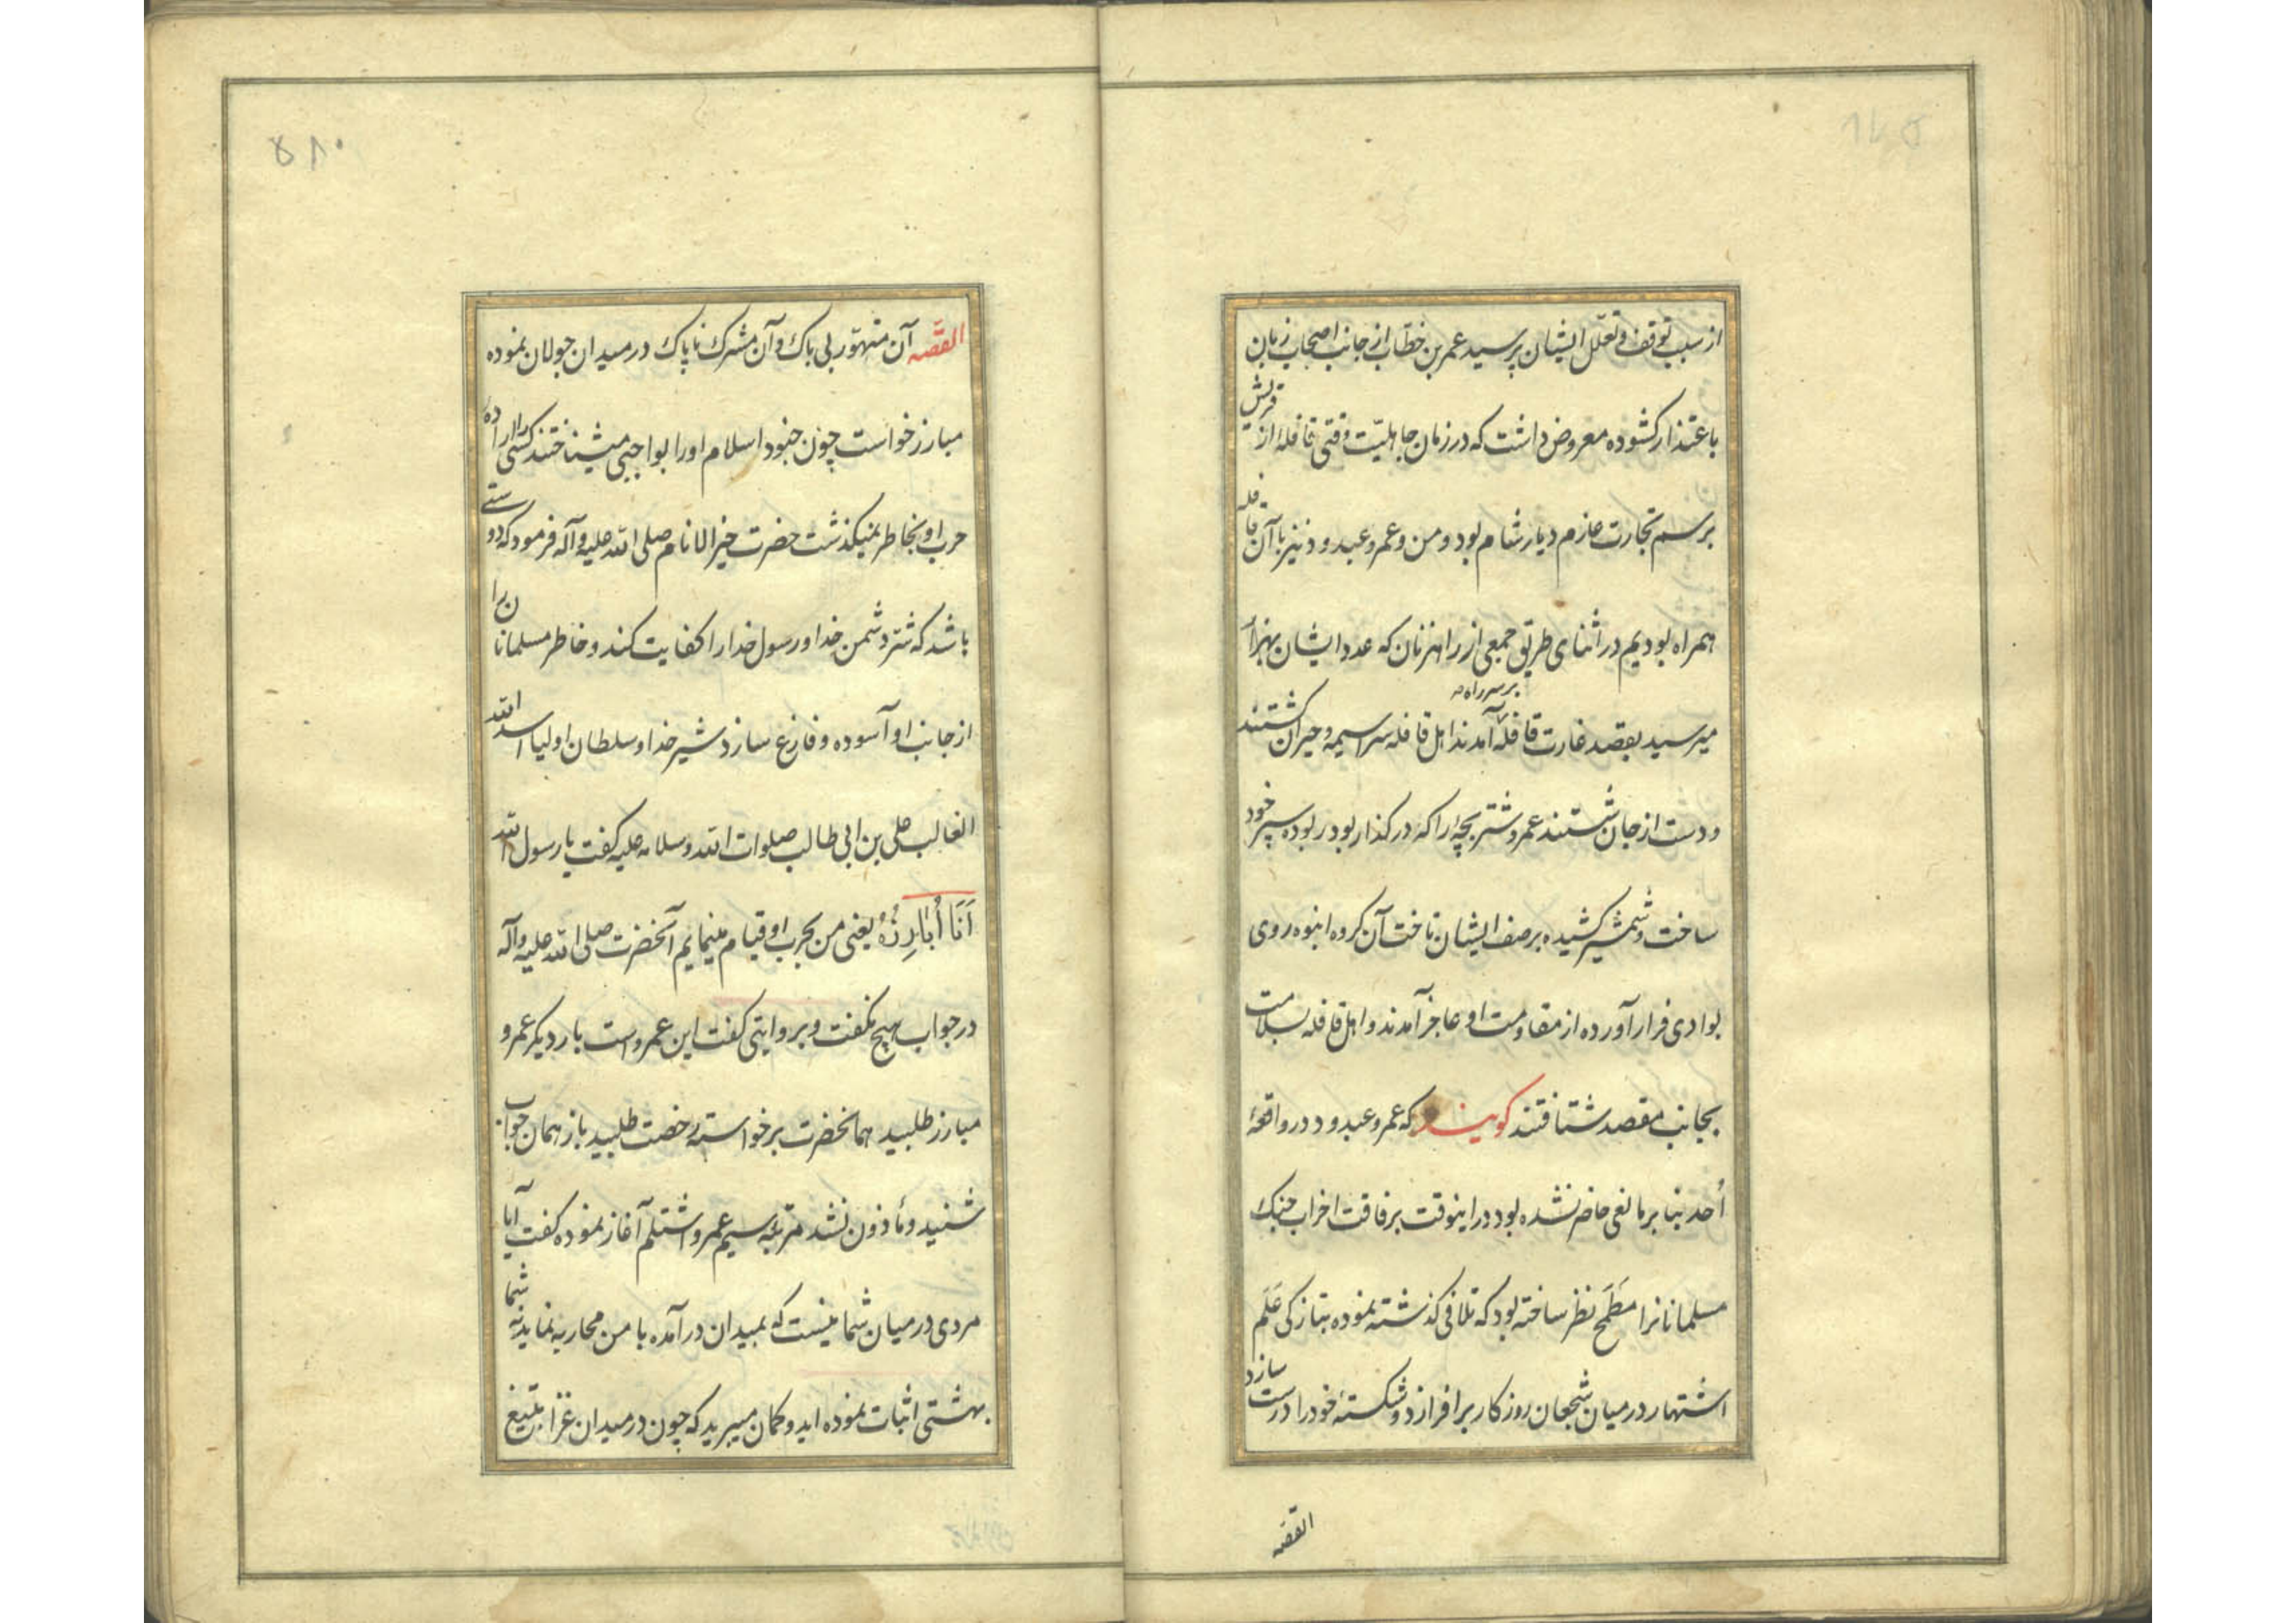 از سبب توقف و تعلّل ایشان پرسید عمر بن خطّاب از جانب اصحاب زبان
باعتذار کشوده معروض داشت که در زمان جاهلیّت وقتی قافلهٔ از قریش
برسم تجارت عازم دیار شام بود و من و عمرو عبدود نیز باآن قافله
همراه بودیم در اثنای طریق جمعی از راهزنان که عدد ایشان بهزار
میرسید بقصد غارت قافله بر سر راه آمدند اهل قافله سراسیمه و حیران کشتند
و دست از جان شستند عمرو شتر بچهٔ را که در کذار بود ربوده سپر خود
ساخت و شمشیر کشیده بر صف ایشان تاخت آن کروه انبوه روی
بوادی فرار آورده از مقاومت او عاجز آمدند و اهل قافله بسلامت
بجانب مقصد شتافتند کویند که عمرو عبدود در واقعهٔ
اُحد بنا بر مانعی حاضر نشده بود در اینوقت برفاقت احزاب جنک
مسلمانانرا مَطمَح نظر ساخته بود که تلافی کذشته نموده بتازکی عَلَم
اشتهار در میان شجعان روزکار برافرازد و شکستهٔ خود را درست سازد
القصّه
۵۸۰
القصّه آن متهوّر بی باک و آن مشرک ناپاک در میدان جولان نموده
مبارز خواست چون جنود اسلام او را بواجبی میشناختند کسی را ارادهٔ
حرب او بخاطر نمیکذشت حضرت خیر الانام صلی الله علیه وآله فرمود که دوستی
باشد که شرّ دشمن خدا و رسول خدا را کفایت کند و خاطر مسلمانان را
از جانب او آسوده و فارغ سازد شیر خدا و سلطان اولیا اسد الله
الغالب علی بن ابی طالب صلوات الله و سلامه علیه کفت یا رسول الله
اَنَا اُبَارِزُهُ یعنی من بحرب او قیام مینمایم آنحضرت صلی الله علیه وآله
در جواب هیچ نکفت و بروایتی کفت این عمرو است بار دیکر عمرو
مبارز طلبید همانحضرت برخواسته رخصت طلبید باز همان جواب
شنید و مأذون نشد مرتبهٔ سیم عمرو اشتلم آغاز نموده کفت آیا
مردی در میان شما نیست که بمیدان درآمده با من محاربه نماید نه شما
بهشتی اثبات نموده اید و کمان میبرید که چون در میدان غزا بتیغ